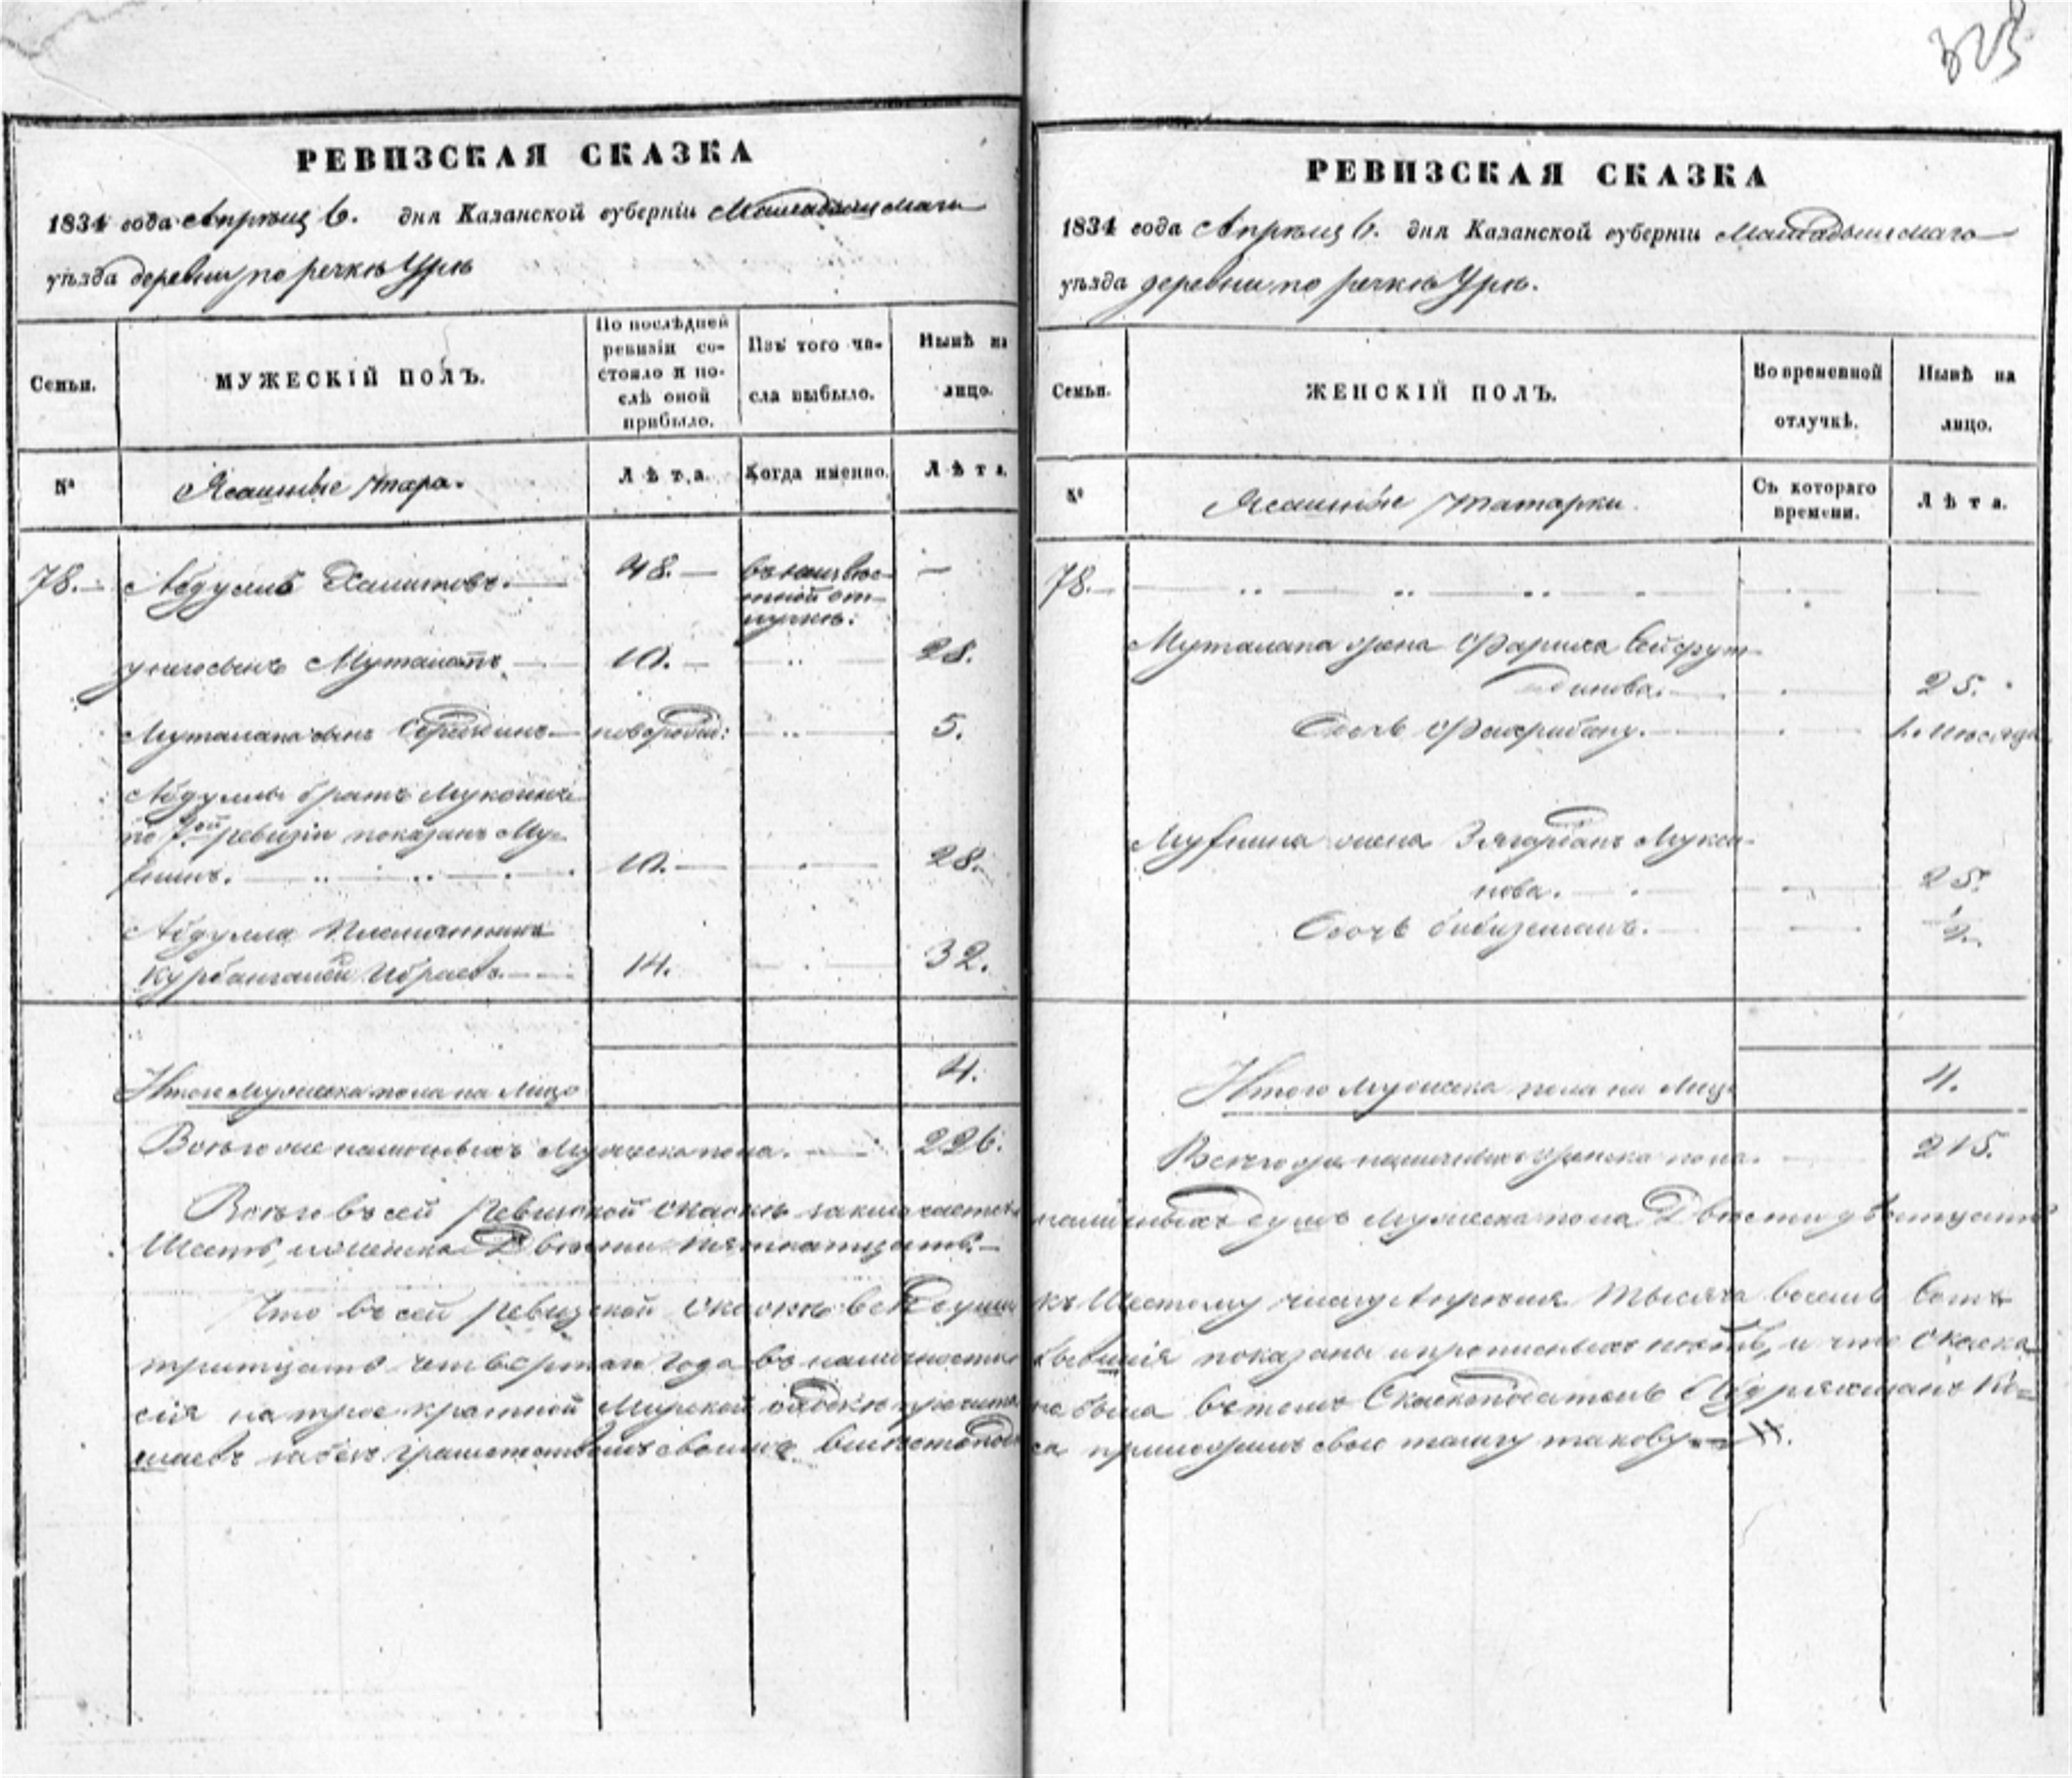 323
РЕВИЗСКАЯ СКАЗКА
1834 года Апреля 6. дня Казанской губерніи Мамадышскаго
уѣзда деревни по речкѣ Урѣ
Семьи.
МУЖЕСКІЙ ПОЛЪ.
По послѣдней
ревизіи со-
стояло и по-
слѣ оной
прибыло.
Изъ того чи-
сла выбыло.
Нынѣ на
лицо.
№
Ясашные татара.
Лѣта.
Когда именно.
Лѣта.
78. Абдулъ Халитовъ. 48. въ неизвѣс-
тной от-
лучкѣ.
у него сынъ Муталапъ 10. 28.
Муталапа сынъ новорожд: 5.
Абдуллы братъ
по 7ой ревизіи показанъ Му-
10. 28.
Абдулла племянникъ
Курбангалей Ибраевъ 14. 32.
Итого мужеска пола на лицо 4.
Всего же наличныхъ мужеска пола. 226.
РЕВИЗСКАЯ СКАЗКА
1834 года Апреля 6. дня Казанской губерніи Мамадышскаго
уѣзда деревни по речкѣ Урѣ.
Семьи.
ЖЕНСКІЙ ПОЛЪ.
Во временной
отлучкѣ.
Нынѣ на
лицо.
№
Ясашные татарки.
Съ котораго
времени.
Лѣта.
78.
Муталапа жена Фариха Сейфут-
динова. 25.
Дочь
жена
25.
Дочь Бибиземалъ. ½
Итого мужеска пола на лицо 4.
Всего же наличныхъ женска пола. 215.
Всего въ сей ревизской сказкѣ заключается наличныхъ душъ мужеска пола Двѣсти дватцать
Шесть, и женска Двѣсти пятнатцать.
Что въ сей ревизской сказкѣ всѣ души къ Шестому числу Апреля тысяча восемь сотъ
тритцать четвертаго года въ наличности бывшія показаны и прописныхъ нѣтъ, и что сказка
сія на трое кратной мирской сходкѣ прочитана была въ томъ Сказкоподатель Абдряхманъ
за не грамотствомъ своимъ вместо приложилъ свою тамгу такову